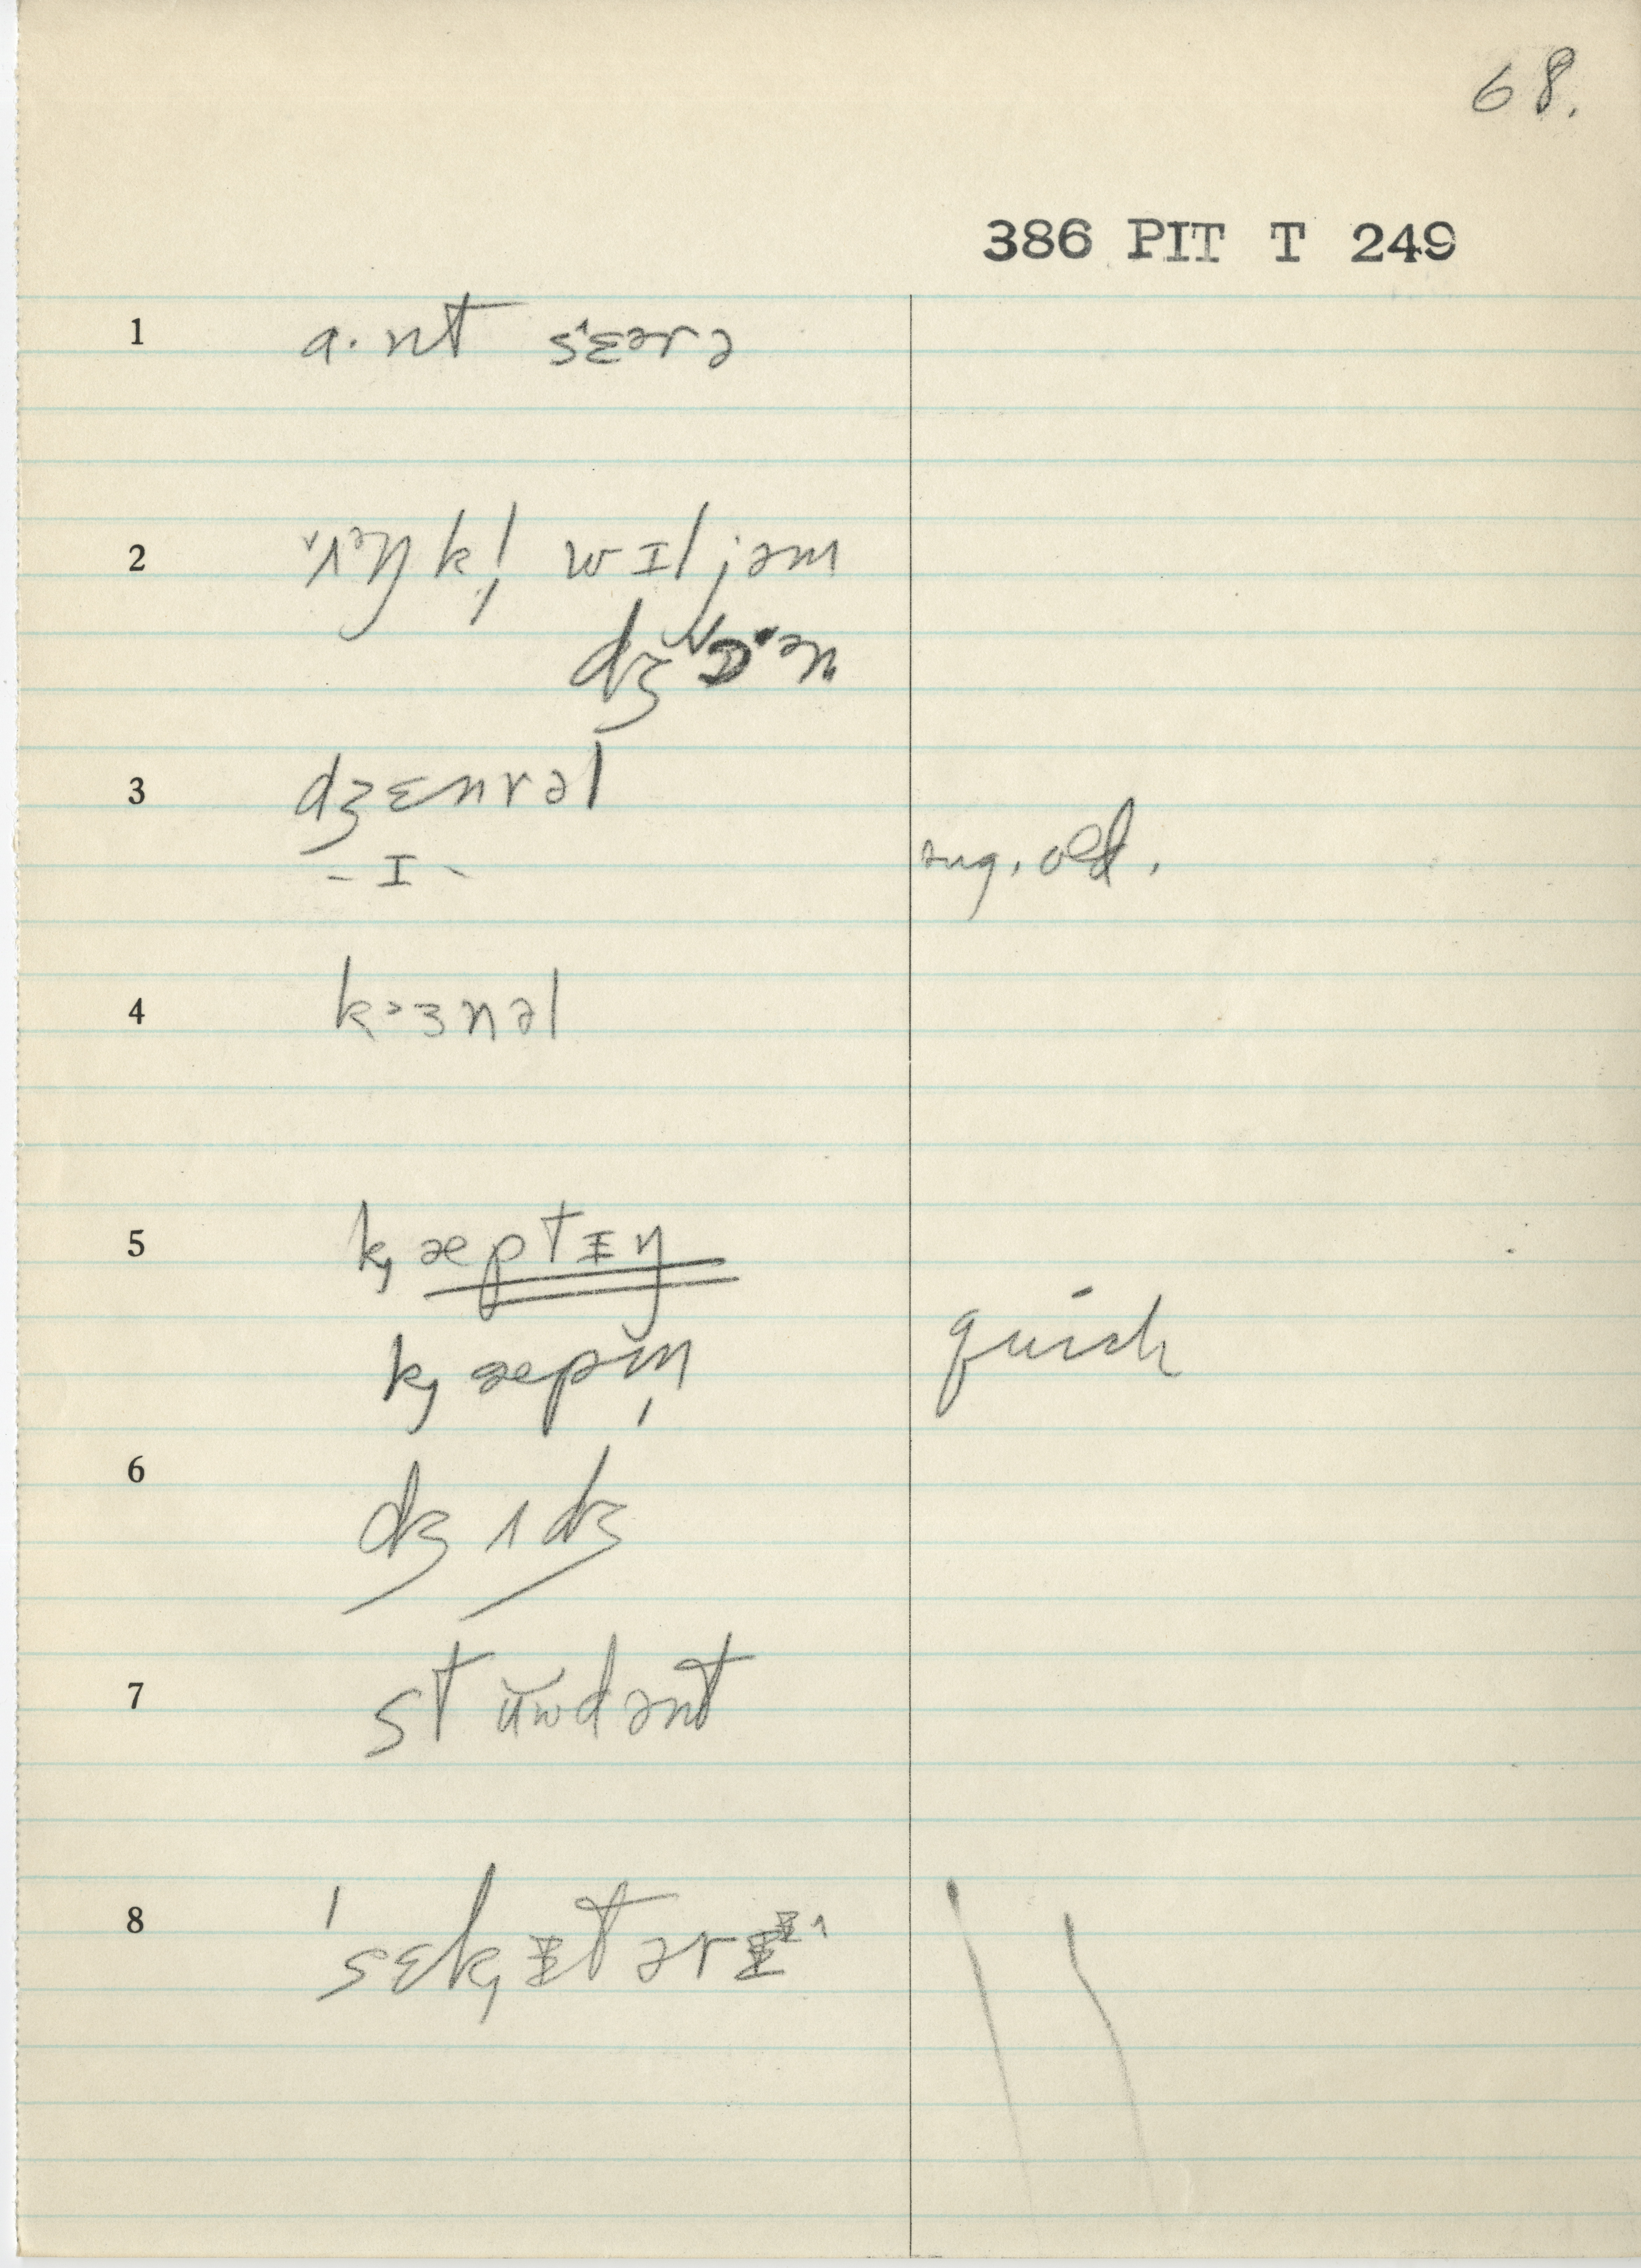 68.
386 PIT T 249
1 a·nt sɛˆərə
2 ˅ʌᵊŋk! wɪljəm
dʒɒˑən
3 dʒɛnrəl
-ɪ- sug. old.
4 kɜnəl
5 k̡æptɪn
k̡æpm̩ quick
6 dʒʌdʒ
7 stŭwdənt
8 'sɛk̡ɪtərɪ